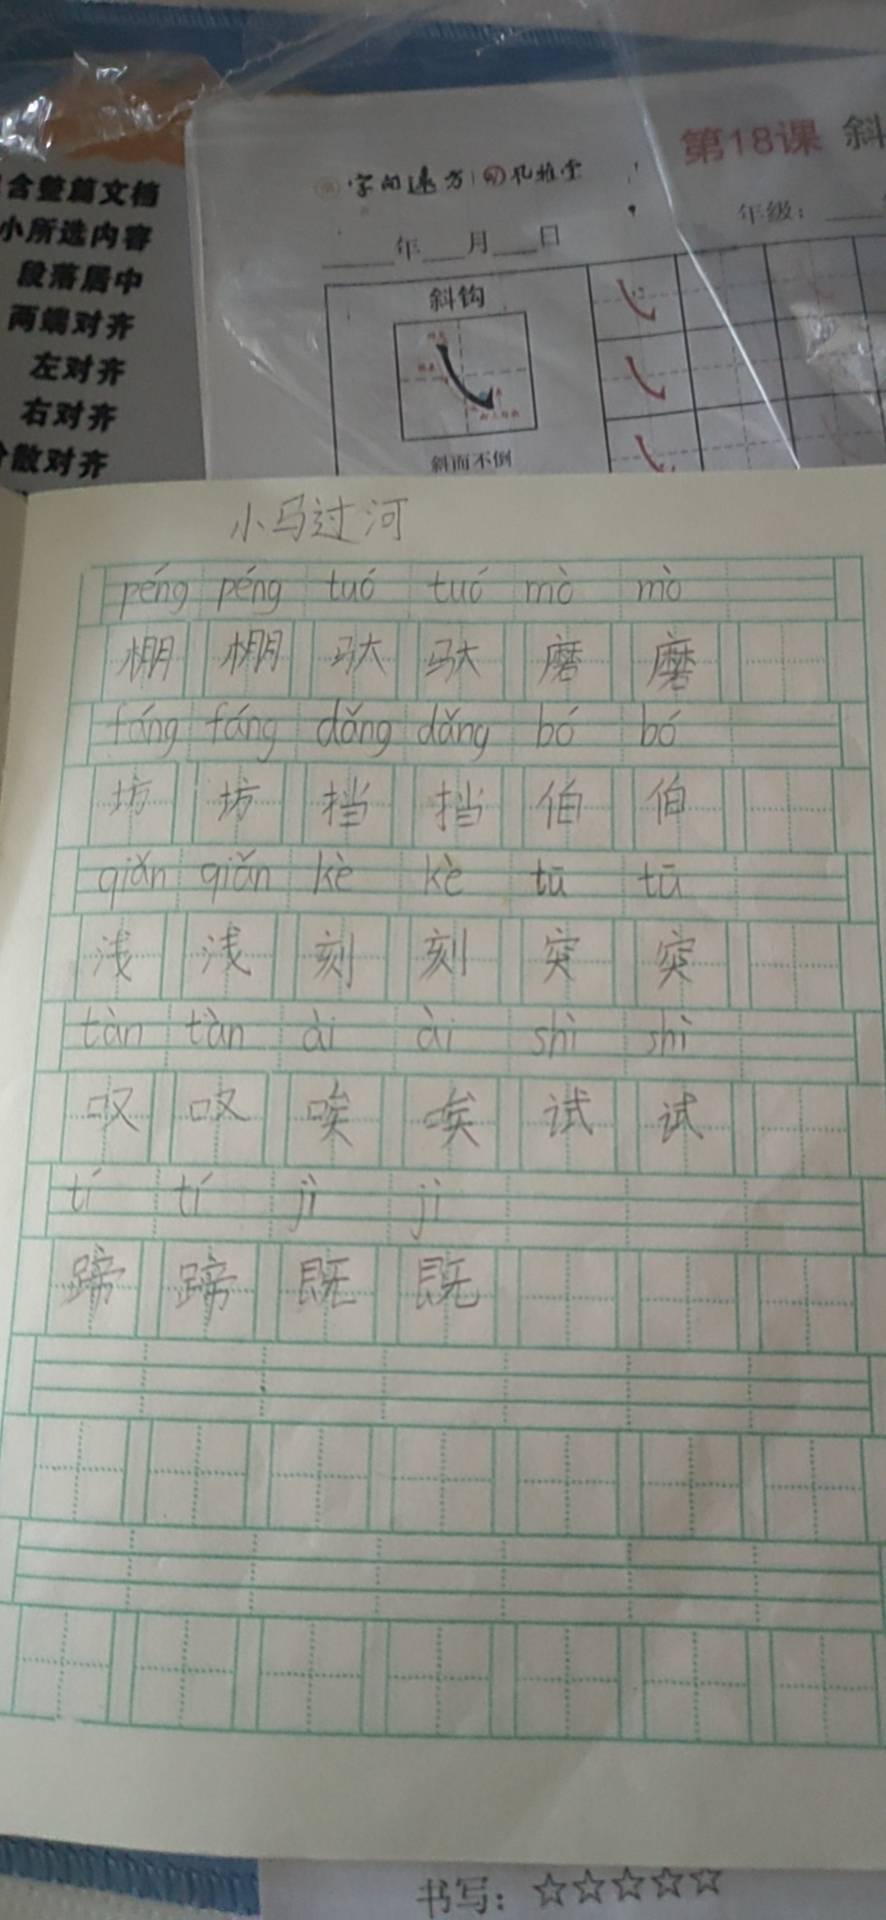 含整篇文档
小所选内容
段落居中
两端对齐
左对齐
右对齐
散对齐
第18课 斜
字向远方 孔雅堂
年级：
____年___月___日
斜钩
斜而不倒
小马过河
péng péng tuó tuó mò mò
棚 棚 驮 驮 磨 磨
fáng fáng dǎng dǎng bó bó
坊 坊 挡 挡 伯 伯
qiǎn qiǎn kè kè tū tū
浅 浅 刻 刻 突 突
tàn tàn ài ài shì shì
叹 叹 唉 唉 试 试
tí tí jì jì
蹄 蹄 既 既
书写：☆☆☆☆☆